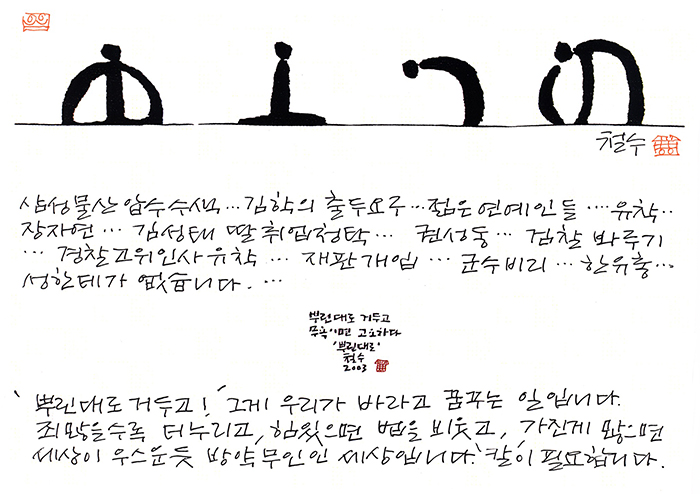 철수
삼성물산 압수수색… 김학의 출두요구… 젊은 연예인들 …. 유착..
장자연 … 김성태 딸 취업청탁… 권성동 … 검찰 봐주기
… 경찰고위인사 유착 … 재판개입 … 군수비리 … 한유총…
성한데가 없습니다. …
뿌린대로 거두고
무욕이면 고요하다
'뿌린대로'
철수
2003
'뿌린대로 거두고!' 그게 우리가 바라고 꿈꾸는 일입니다.
죄 많을수록 더 누리고, 힘있으면 법을 비웃고, 가진게 많으면
세상이 우스운듯 방약무인인 세상입니다. '칼'이 필요합니다.